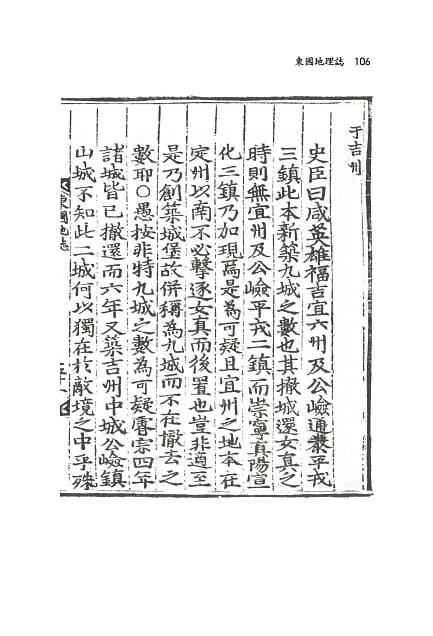 東國地理誌 106
于吉州
史臣曰咸英雄福吉宜六州及公嶮通泰平戎
三鎭此本新築九城之數也其撤城還女眞之
時則無宜州及公嶮平戎二鎭而崇寧眞陽宣
化三鎭乃加現焉是為可疑且宜州之地本在
定州以南不必擊逐女眞而後置也豈非適至
是乃創築城堡故併稱為九城而不在撤去之
數耶○愚按非特九城之數為可疑睿宗四年
諸城皆已撤還而六年又築吉州中城公嶮鎭
山城不知此二城何以獨在於敵境之中乎殊
東國地誌